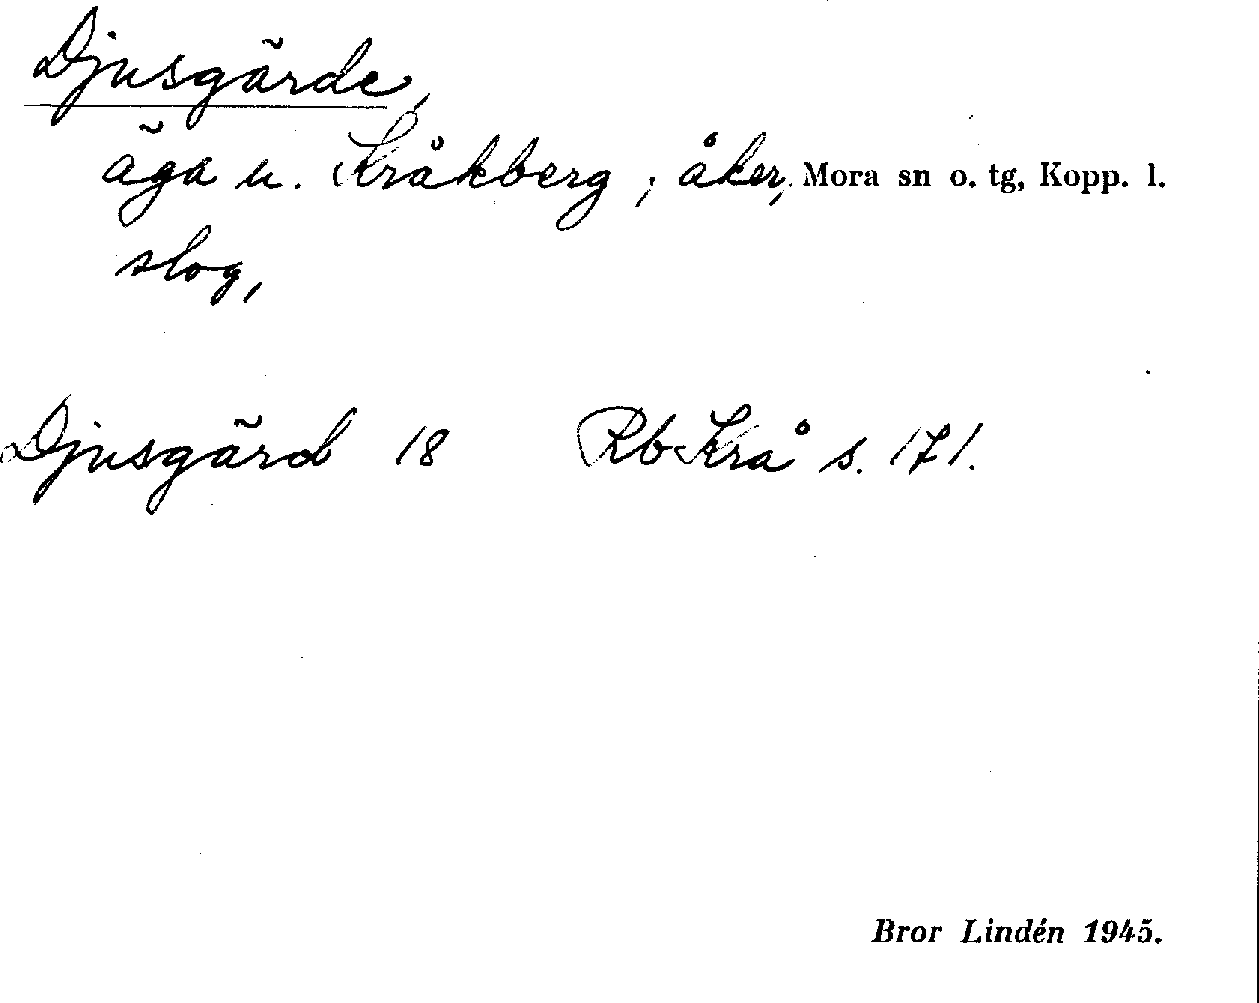 Djusgärde,
äga u. Kråkberg; åker, Mora sn o. tg, Kopp. l.
slog,
Djusgärd 18 Rb Krå s. 171.
Bror Lindén 1945.